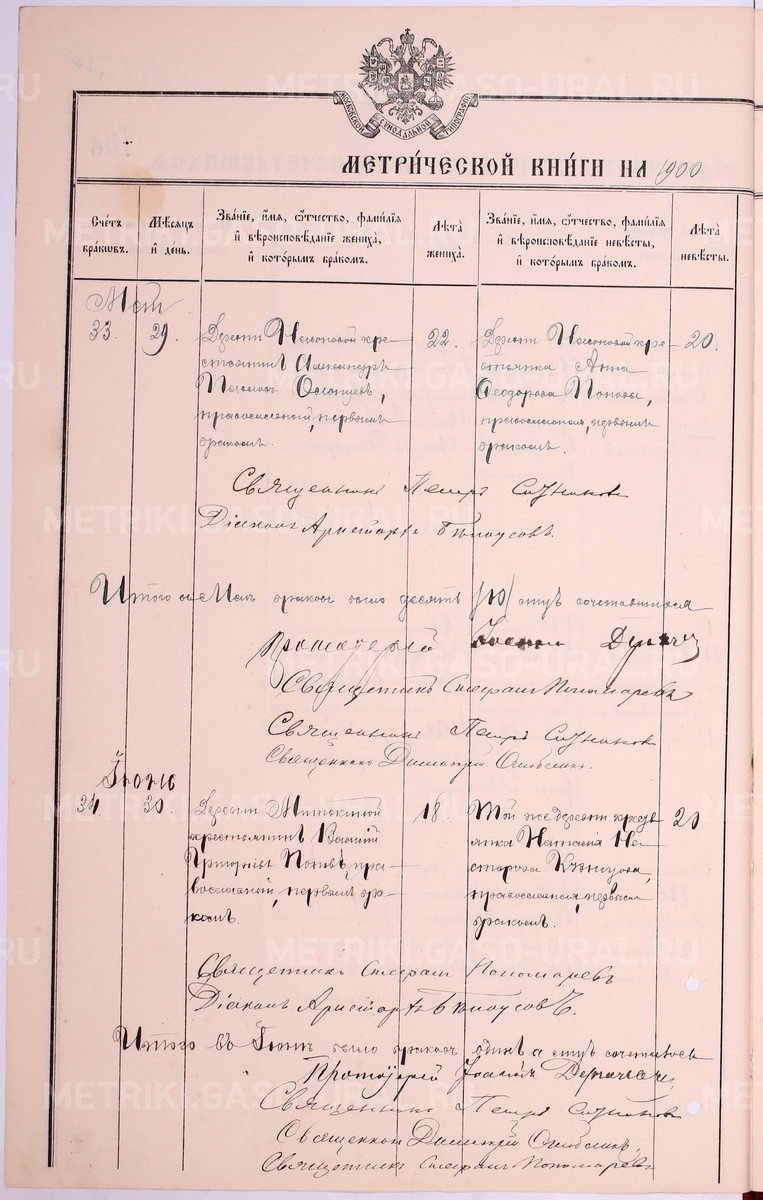 МОСКОВСКОЙ СѴНОДАЛЬНОЙ ТИПОГРАФІИ
МЕТРИ́ЧЕСКОЙ КНИ́ГИ НА 1900
Сче́тъ бра́ковъ.
Мѣ́сяцъ и҆ де́нь.
Зва́нїе, и҆́мя, ѻ҆́тчество, фамилїя и҆ вѣроисповѣ́данїе жениха̀, и҆ кото́рымъ бра́комъ.
Лѣ́та жениха̀.
Зва́нїе, и҆́мя, ѻ҆́тчество, фамилїя и҆ вѣроисповѣ́данїе невѣ́сты, и҆ кото́рымъ бра́комъ.
Лѣ́та невѣ́сты.
Май
33. 29.
Деревни кре-
стьянинъ Александръ
православный, первымъ
бракомъ.
22.
Деревни кре-
стьянка Анна
Ѳеодорова Попова,
православная, первымъ
бракомъ.
20.
Священникъ Петръ
Діаконъ Аристархъ Бѣлоусовъ.
Итого въ Маѣ браковъ было десять /10/ сочетавшихся
Протоіерей Іоаннъ
Священникъ Стефанъ Пономаревъ
Священникъ Петръ
Священникъ Димитрій
Іюнь
34 30.
Деревни
крестьянинъ Василій
Григорьевъ Поповъ, пра-
вославный, первымъ бра-
комъ.
18.
Той же деревни кресть-
янка Наталія Не-
сторова Кузнецова,
православная, первымъ
бракомъ.
20
Священникъ Стефанъ Пономаревъ
Діаконъ Аристархъ Бѣлоусовъ.
Итого въ Іюнѣ было браковъ одинъ а
Протоіерей Іоаннъ
Священникъ Петръ
Священникъ Димитрій
Священникъ Стефанъ Пономаревъ
METRIKI.GASO-URAL.RU